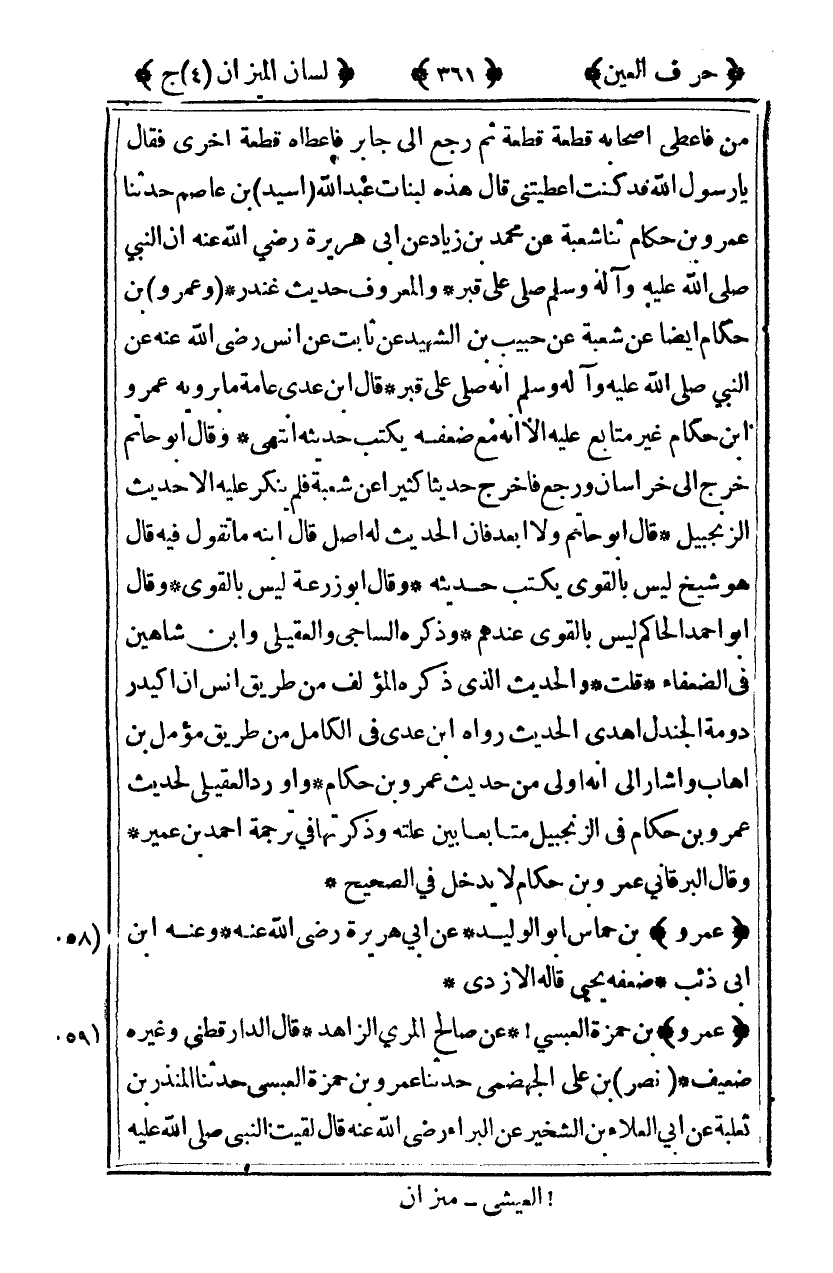 ﴿ حرف العين﴾ ﴿ ٣٦١ ﴾ ﴿ لسان الميزان (٤) ج ﴾
من فاعطى اصحابه قطعة قطعة ثم رجع الى جابر فاعطاه قطعة اخرى فقال
يارسول الله قد كنت اعطيتنى قال هذه لبنات عبدالله (اسيد) بن عاصم حدثنا
عمرو بن حكام ثنا شعبة عن محمد بن زياد عن ابى هريرة رضي الله عنه ان النبي
صلى الله عليه وآله وسلم صلى على قبر * والمعروف حديث غندر * (وعمرو) بن
حكام ايضا عن شعبة عن حبيب بن الشهيد عن ثابت عن انس رضى الله عنه عن
النبي صلى الله عليه وآله وسلم انه صلى على قبر * قال ابن عدى عامة ما يرويه عمرو
ابن حكام غير متابع عليه الا انه مع ضعفه يكتب حديثه انتهى * وقال ابو حاتم
خرج الى خراسان ورجع فاخرج حديثا كثيرا عن شعبة فلم ينكر عليه الا حديث
الزنجبيل * قال ابو حاتم ولا ابعد فان الحديث له اصل قال ابنه ما تقول فيه قال
هو شيخ ليس بالقوى يكتب حديثه * وقال ابو زرعة ليس بالقوى * وقال
ابو احمد الحاكم ليس بالقوى عندهم * وذكره الساجى والعقيلى وابن شاهين
فى الضعفاء * قلت * والحديث الذى ذكره المؤلف من طريق انس ان اكيدر
دومة الجندل اهدى الحديث رواه ابن عدى فى الكامل من طريق مؤمل بن
اهاب واشار الى انه اولى من حديث عمرو بن حكام * واورد العقيلى لحديث
عمرو بن حكام فى الزنجبيل متابعا بين علته وذكرتها في ترجمة احمد بن عمير *
وقال البرقاني عمرو بن حكام لا يدخل في الصحيح *
﴿ عمرو ﴾ بن حماس ابو الوليد * عن ابي هريرة رضى الله عنه * وعنه ابن (٠٥٨
ابى ذئب * ضعفه يحيى قاله الازدى *
﴿ عمرو ﴾ بن حمزة العبسي ! * عن صالح المري الزاهد * قال الدارقطني وغيره (٠٥٩
ضعيف * (نصر) بن على الجهضمى حدثنا عمرو بن حمزة العبسى حدثنا المنذر بن
ثعلبة عن ابي العلاء بن الشخير عن البراء رضى الله عنه قال لقيت النبى صلى الله عليه
! العيشى ـ ميزان